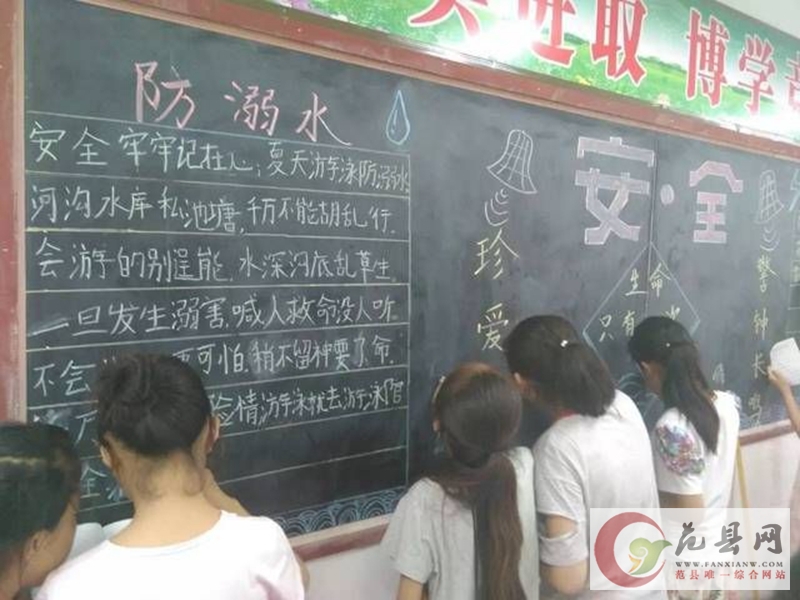 进取 博学
防溺水
安全牢牢记在心;夏天游泳防溺水
河沟水库私池塘,千万不能胡乱行.
会游的别逞能,水深沟底乱草生.
一旦发生溺害,喊人救命没人听
不会 可怕.稍不留神要了命.
险情游泳就去游泳馆
全
安·全
珍爱
生命
只有
警钟长鸣
范县网
WWW.FANXIANW.COM
范县唯一综合网站